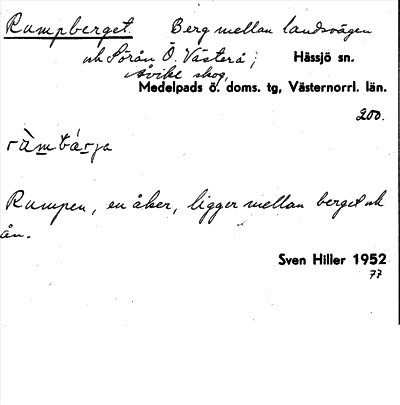 Rumpberget. Berg mellan landsvägen
och Sörån Ö. Västerå; Hässjö sn.
Åvike skog,
Medelpads ö. doms. tg, Västernorrl. län.
200.
Rumpen, en åker, ligger mellan berget och
ån.
Sven Hiller 1952
77